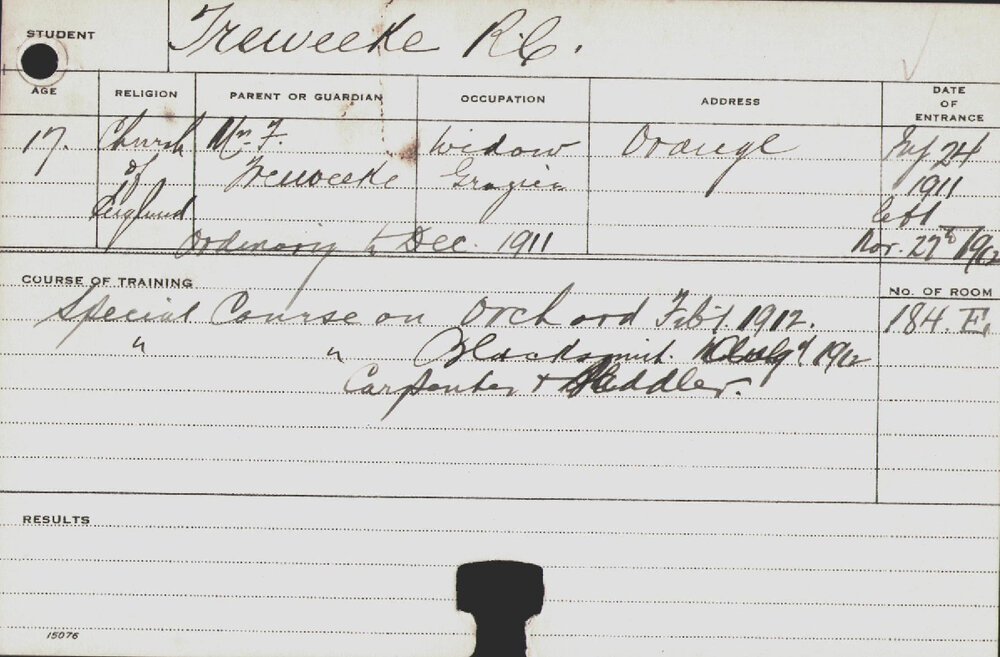 STUDENT Treweeke R.C.
AGE RELIGION PARENT OR GUARDIAN OCCUPATION ADDRESS DATE OF ENTRANCE
17. Church of England Mrs F. Treweeke Widow Grazier Orange 24 1911
left Nov. 27th 1912
Ordinary to Dec. 1911
COURSE OF TRAINING No. OF ROOM
Special Course on Orchard Feb 1. 1912. 184. E.
" " Blacksmith 1912
Carpenter + Saddler.
RESULTS
15076